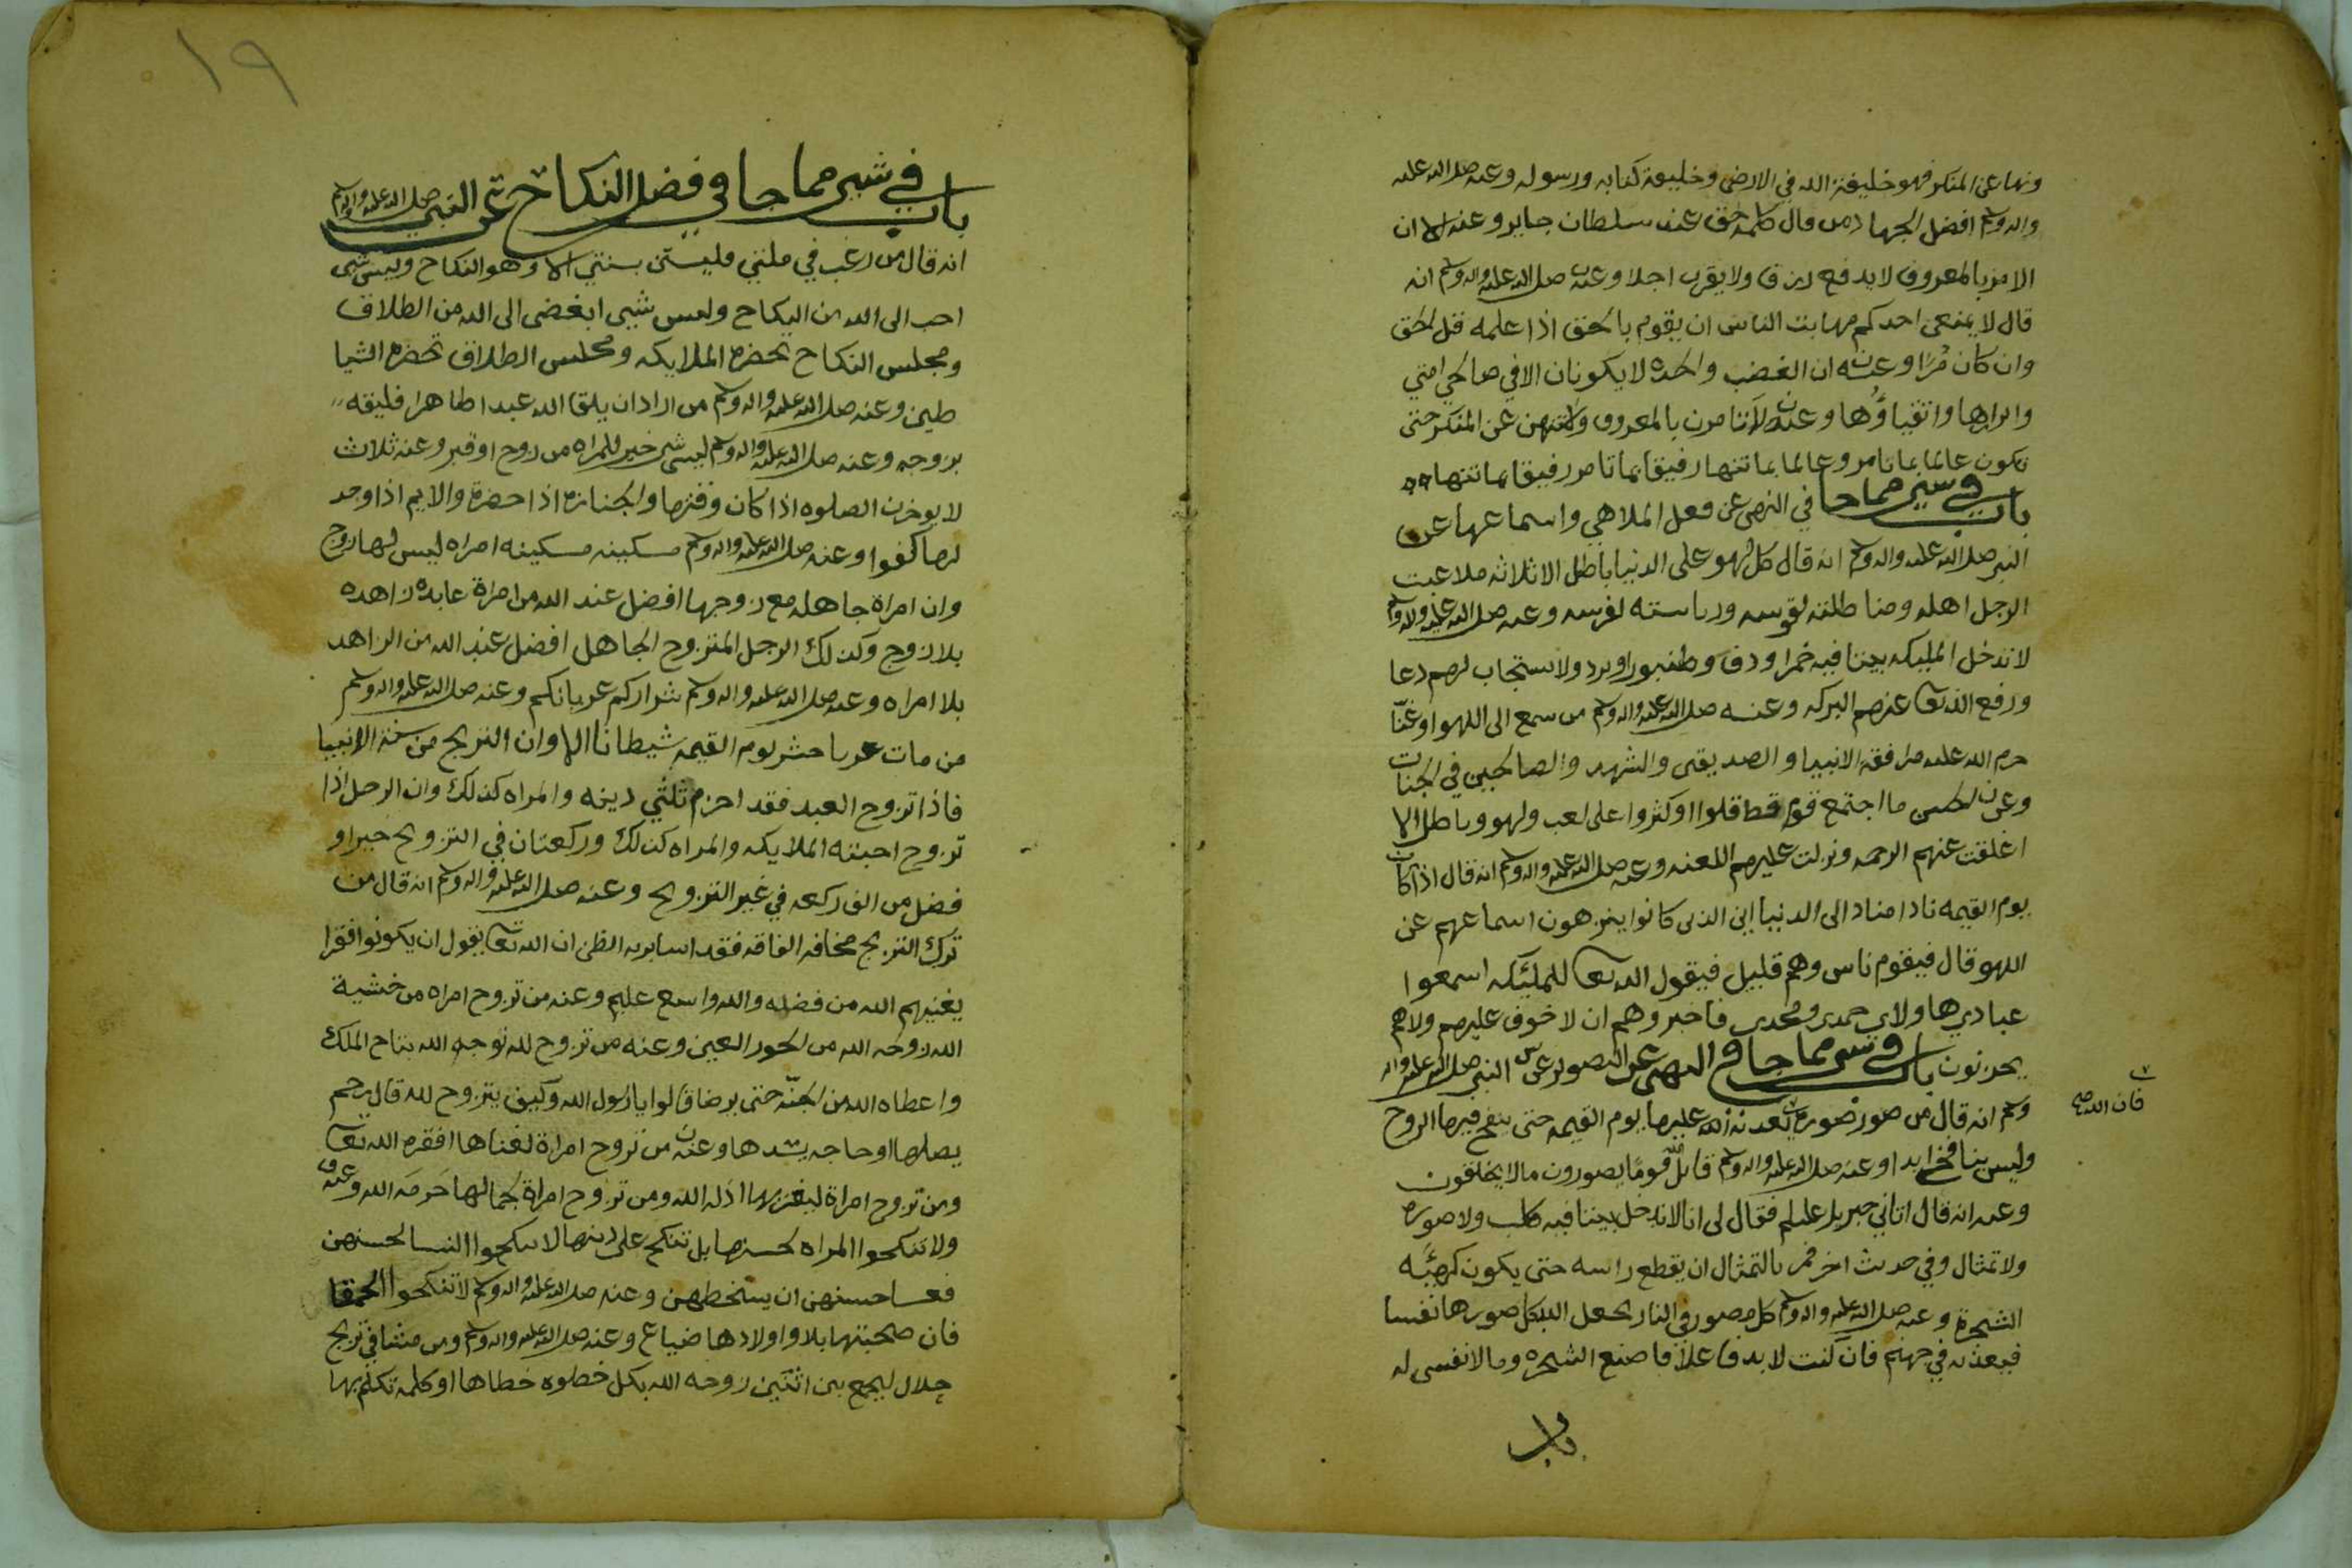 ونها عن المنكر فهو خليفة الله في الارض وخليفة كتابه ورسوله وعنه صلى الله عليه
واله وسلم افضل الجهاد من قال كلمة حق عند سلطان جابر وعنه الا ان
الامر بالمعروف لا يدفع رزقا ولا يقرب اجلا وعنه صلى الله عليه واله وسلم انه
قال لا يمنعن احدكم مهابت الناس ان يقوم بالحق اذا علمه قل الحق
وان كان مرا وعنه ان الغضب والحده لا يكونان الا في صالحي امتي
وابرارها واتقياؤها وعنه لا تامرن بالمعروف ولا تنهن عن المنكر حتى
تكون عالما بما تامر وعالما بما تنها رفيقا بما تامر رفيقا بما تنها
باب في شيء مما جا في النهي عن فعل الملاهي واسماعها عن
النبي صلى الله عليه واله وسلم انه قال كل لهو على الدنيا باطل الا ثلاثه ملاعبت
الرجل اهله ومناطلته لقوسه ورياسته لفرسه وعنه صلى الله عليه واله وسلم
لا تدخل المليكه بيتا فيه خمرا ودف وطنبورا ونرد ولا ستجاب لهم دعا
ورفع الله تعا عنهم البركه وعنه صلى الله عليه واله وسلم من سمع الى اللهو او غنا
حرم الله عليه مرافقة الانبيا والصديقين والشهدا والصالحين في الجنات
وعن ما اجتمع قوم قط قلوا او كثروا على لعب ولهو وباطل الا
اغلقت عنهم الرحمه ونزلت عليهم اللعنه وعنه صلى الله عليه واله وسلم انه قال اذا كان
يوم القيمه نادا مناد الى الدنيا اين الذين كانوا ينزهون اسماعهم عن
اللهو قال فيقوم ناس وهم قليل فيقول الله تعا للمليكه اسمعوا
عبادي هاولاي حمدي ومجدي فاخبروهم ان لا خوف عليهم ولا هم
يحزنون باب في شيء مما جا في النهي عن التصوير عن النبي صلى الله عليه واله
وسلم انه قال من صور صورة يعذبه الله عليها يوم القيمه حتى ينفخ فيها الروح
فان الله صح
وليس بنافخ ابدا وعنه صلى الله عليه واله وسلم قاتل الله قوما يصورون مالا يخلقون
وعنه انه قال اتاني جبريل عليلم فقال لي انا لا ندخل بيتا فيه كلب ولا صوره
ولا تمثال وفي حديث اخر فمر بالتمثال ان يقطع راسه حتى يكون كهيئه
الشجرة وعنه صلى الله عليه واله وسلم كل مصور في النار يجعل الله بكل صورها نفسا
فيعذبه في جهنم فان كنت لا بد فاعلا فاصنع الشجره وما لا نفس له
باب
١٩
باب في شيء مما جا في فضل النكاح عن النبي صلى الله عليه واله وسلم
انه قال من رغب في ملتي فليستن بسنتي الا وهو النكاح وليس شي
احب الى الله من النكاح وليس شيى ابغض الى الله من الطلاق
ومجلس النكاح تحضره الملايكه ومجلس الطلاق تحضره الشيا
طين وعنه صلى الله عليه واله وسلم من اراد ان يلقا الله عبدا طاهرا فليقه
بزوجه وعنه صلى الله عليه واله وسلم ليس شي خير للمراه من زوج او قبر وعنه ثلاث
لا يوخرن الصلوه اذا كان وقتها والجنازه اذا حضرة والايم اذا وجد
لها كفوا وعنه صلى الله عليه واله وسلم مسكينه مسكينه امراه ليس لها زوج
وان امراة جاهله مع زوجها افضل عند الله من امراة عابده زاهده
بلا زوج وكذلك الرجل المتزوج الجاهل افضل عند الله من الزاهد
بلا امراه وعنه صلى الله عليه واله وسلم شراركم عزبانكم وعنه صلى الله عليه واله وسلم
من مات عزبا حشر يوم القيمه شيطانا الا وان التزيج من سنة الانبيا
فاذا تزوج العبد فقد احزم ثلثي دينه والمراه كذلك وان الرجل اذا
تزوج احبته الملايكه والمراه كذلك وركعتان في التزويج خير او
فضل من الف ركعه في غير التزويج وعنه صلى الله عليه واله وسلم انه قال من
ترك التزيج مخافه الفاقه فقد اسا بربه الظن ان الله تعا يقول ان يكونوا فقرا
يغنيهم الله من فضله والله واسع عليم وعنه من تزوج امراه من خشية
الله زوجه الله من الحور العين وعنه من تزوج لله توجه الله بتاج الملك
واعطاه الله من الجنه حتى يرضا قالوا يا رسول الله وكيف يتزوج لله قال يرحم
يصلها او حاجه يشدها وعنه من تزوج امراة لغناها افقره الله تعا
ومن تزوج امراة ليعز بها اذله الله ومن تزوج امراة لجمالها حرمه الله وعنه
ولا تنكحوا المراه لحسنها بل تنكح على دينها لا تنكحوا النسا لحسنهن
فعسا حسنهن ان يسخطهن وعنه صلى الله عليه واله وسلم لا تنكحوا الحمقا
فان صحبتها بلا واولادها ضياع وعنه صلى الله عليه واله وسلم ومن مشا في تزيج
حلال ليجمع بين اثنين زوجه الله بكل خطوه خطاها او كلمه تكلم بها